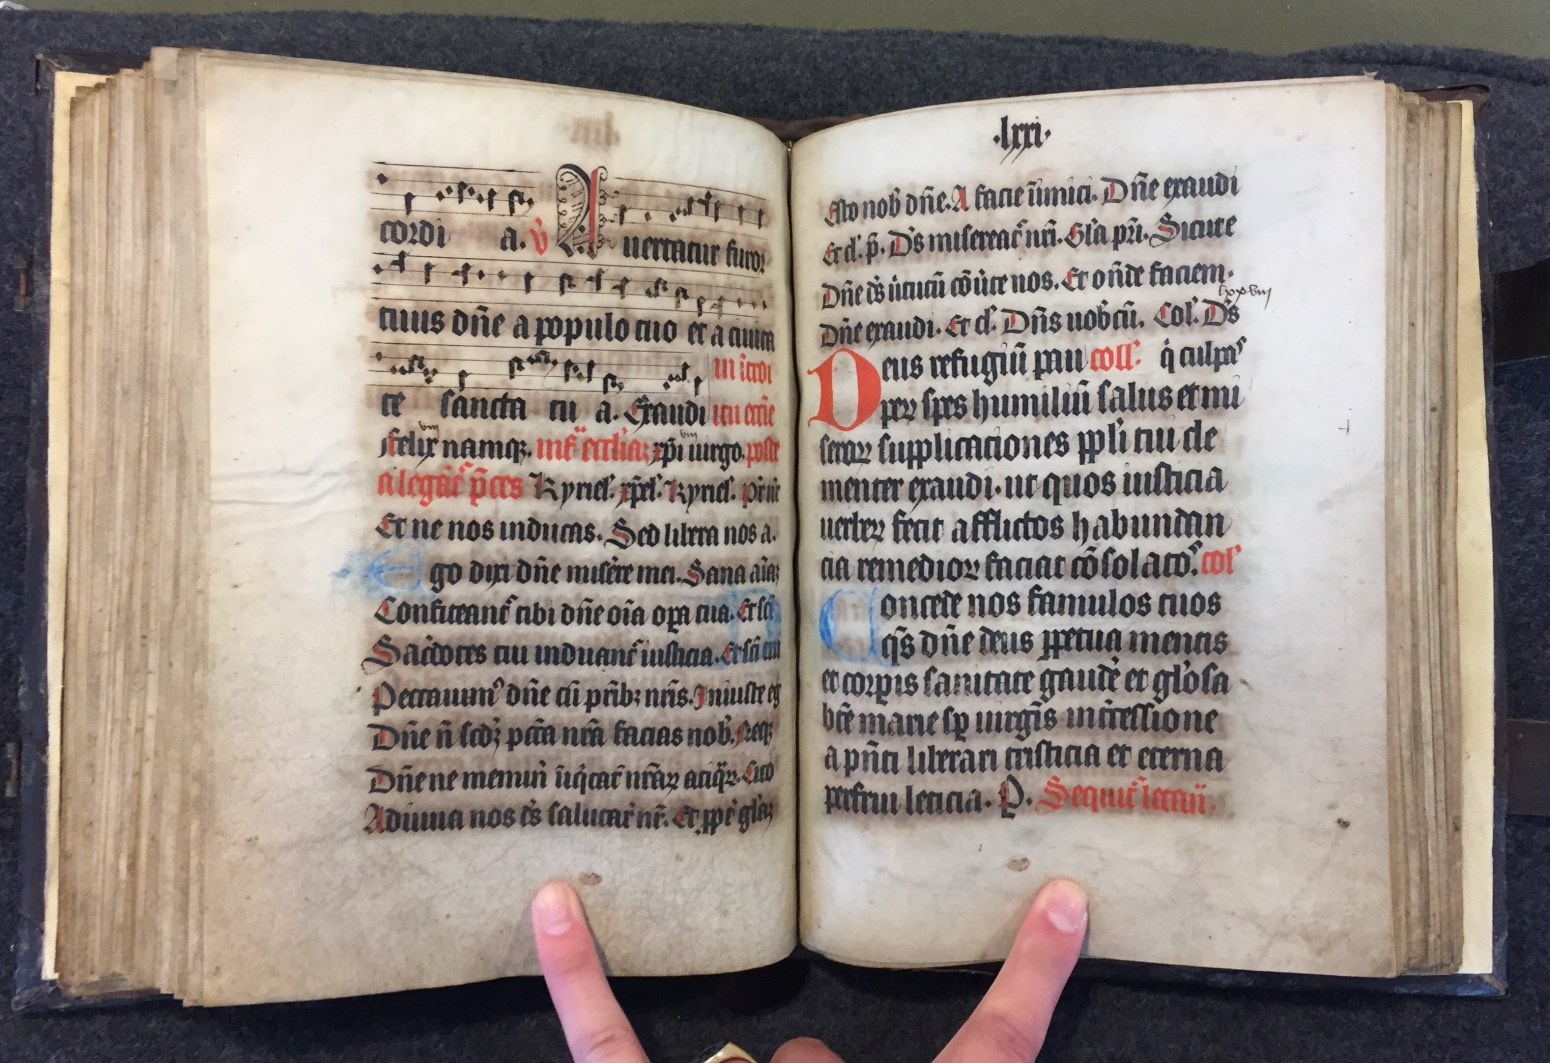 cordi a. v̄ Auertatur furor
tuus dn̄e a populo tuo et a ciuita
in ītroi
te sancta tu a. Exaudi itu eccīe
viii viii
felix namq;. xp̄i uirgo. postea
a legūt p̄ces Kyriel. xp̄el. Kyriel. Pr̄ nr̄
Et ne nos inducas. Sed libera nos a.
Ego dixi dn̄e miserē mei. Sana aīaꝫ
Confiteant᷑ tibi dn̄e oīa oꝑa tua. Et sc̄i
Sac̄dotes tui induant᷑ iusticia. Et sc̄i tui
Peccauimꝰ dn̄e cū pr̄ibꝫ nr̄is. Iniuste eg
Dn̄e n̄ scd̄ꝫ pcc̄a nr̄a facias nob̄. Neqꝫ
Dn̄e ne memin̄ īiq̇tat̄ nr̄aꝝ atiq̄ꝝ. Cito
Adiuua nos d̄s salutar̄ nr̄. Et ꝓpt̄ gl̄aꝫ
·lxxi·
Esto nob̄ dn̄e. A facie īimici. Dn̄e exaudi
Et d̄. p̄. Ds̄ misereat᷑ nr̄i. Gl̄a pr̄i. Sicut e
Dn̄e d̄s ūtutū cōūte nos. Et on̄de faciem.
lxxviii
Dn̄e exaudi. Et d̄. Dn̄s uob̄cū. Col̄. Ds̄
Deus refugiū pau coll̄. q̇ culpaˢ
peꝝ spes humiliū salus et mi
seroꝝ supplicationes ppl̄i tui de
menter exaudi. ut quos iusticia
uerbeꝝ fecit afflictos habundan
cia remedioꝝ faciat cōsolatōˢ. col̄
Concede nos famulos tuos
qs̄ dn̄e deus ꝑpetua mentis
et corꝑis sanitate gaudē et gl̓osa
btē marie sꝑ uirgīs intcessione
a pn̄ti liberari tristicia et eterna
perfrui leticia. P. Sequit᷑ lectiū.